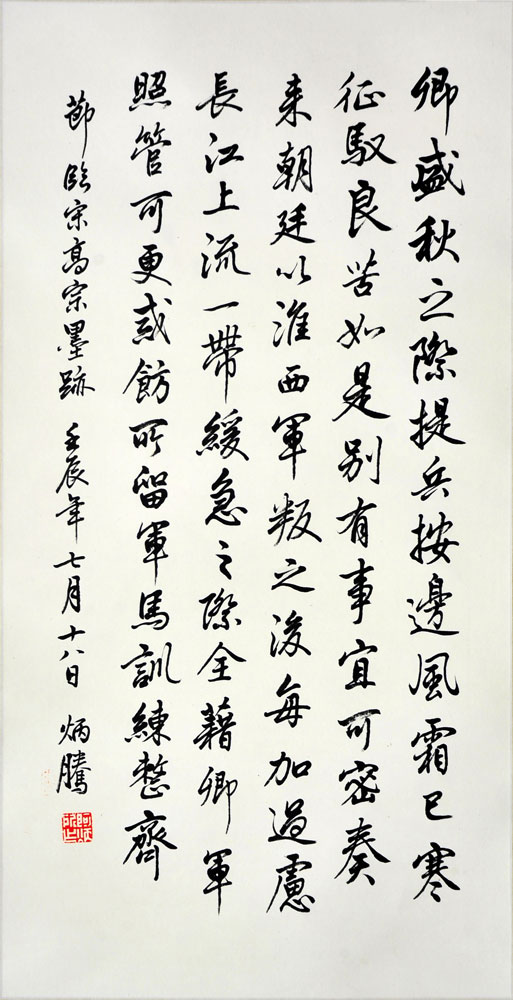 卿盛秋之際提兵按邊風霜已寒
征馭良苦如是別有事宜可密奏
来朝廷以淮西軍叛之後每加過慮
長江上流一帶緩急之際全藉卿軍
照管可更戒飭所留軍馬訓練整齊
節臨宋高宗墨跡 壬辰年七月十八日 炳騰